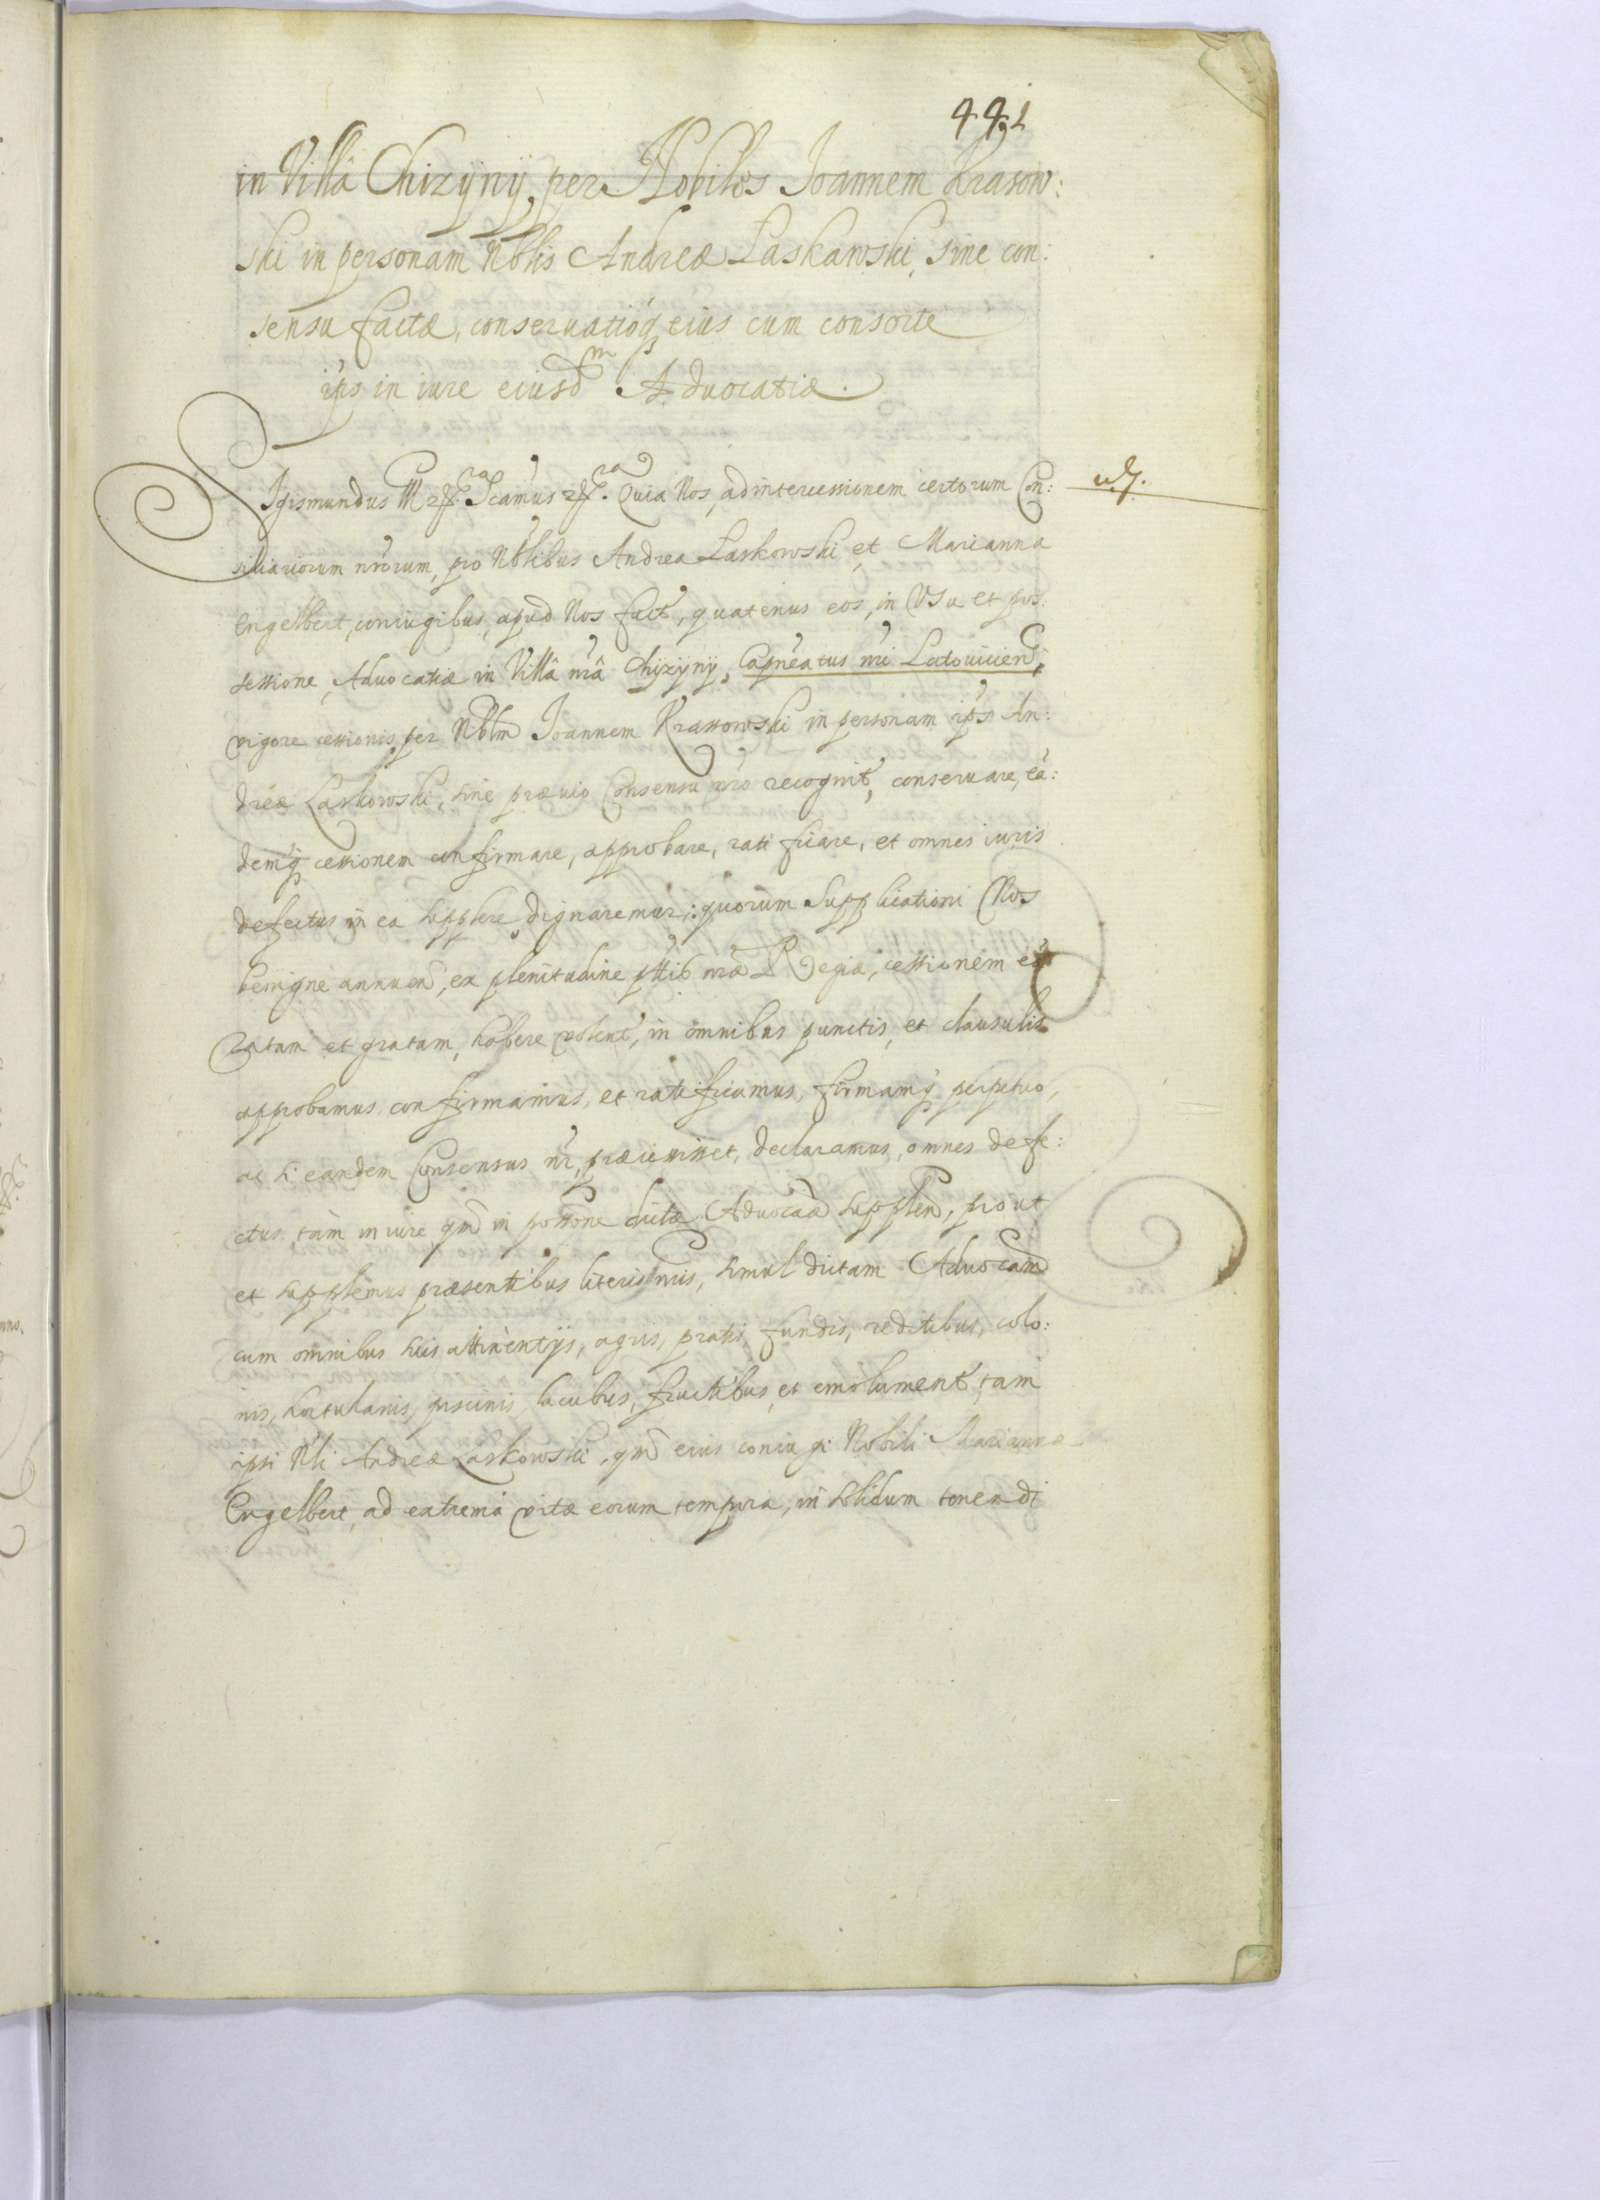 442
in Villâ Chizÿnÿ, per Nobiles Joannem Krasow:
ski in personam Nblis Andreæ Laskawski, sine con:
sensu factæ, conseruatioq eius cum consorte
ips in iure eiusdm Aduocatiæ.
Sigismundus III Quia Nos, ad intercessionem certorum Con:
siliariorum nrorum, pro Nblibus Andrea Laskowski et Marianna
Engelbert, coniugibus, apud Nos fact, quatenus eos, in Vsu et pos:
sessione, Aduocatiæ in Villâ nrâ Chizÿnÿ, Capneatus nri
vigore cessionis per Nblm Joannem Krassowski in personam ips An:
dreæ Laskowski, sine præuio Consensu nro recognit, conseruare, eã:
demq cessionem confirmare, approbare, ratificare, et omnes iuris
defectus in ea supplere dignaremur: quorum supplicationi Nos
benigne annuen, ex plenitudine pttis nræ Regiæ, cessionem eã
ratam et gratam, habere volent, in omnibus punctis, et clausulis
approbamus, confirmamus, et ratificamus, firmamq perpetuo,
ac si eandem Consensus nr, præcessisset, declaramus, omnes defe:
ctus, tam in iure qm in possone dictæ Aduocaæ supplen, prout
et supplemus præsentibus literis nris, simul dictam Aduocam
cum omnibus suis attinentijs, agris, pratis, fundis, reditibus, colo:
nis, hortulanis, piscinis, lacubus, fructibus, et emolument, tam
ipsi Nli Andreæ Laskowski, qm eius coniugi Nobili Mariannæ
Engelbert, ad extrema vitæ eorum tempora, in solidum tenendi